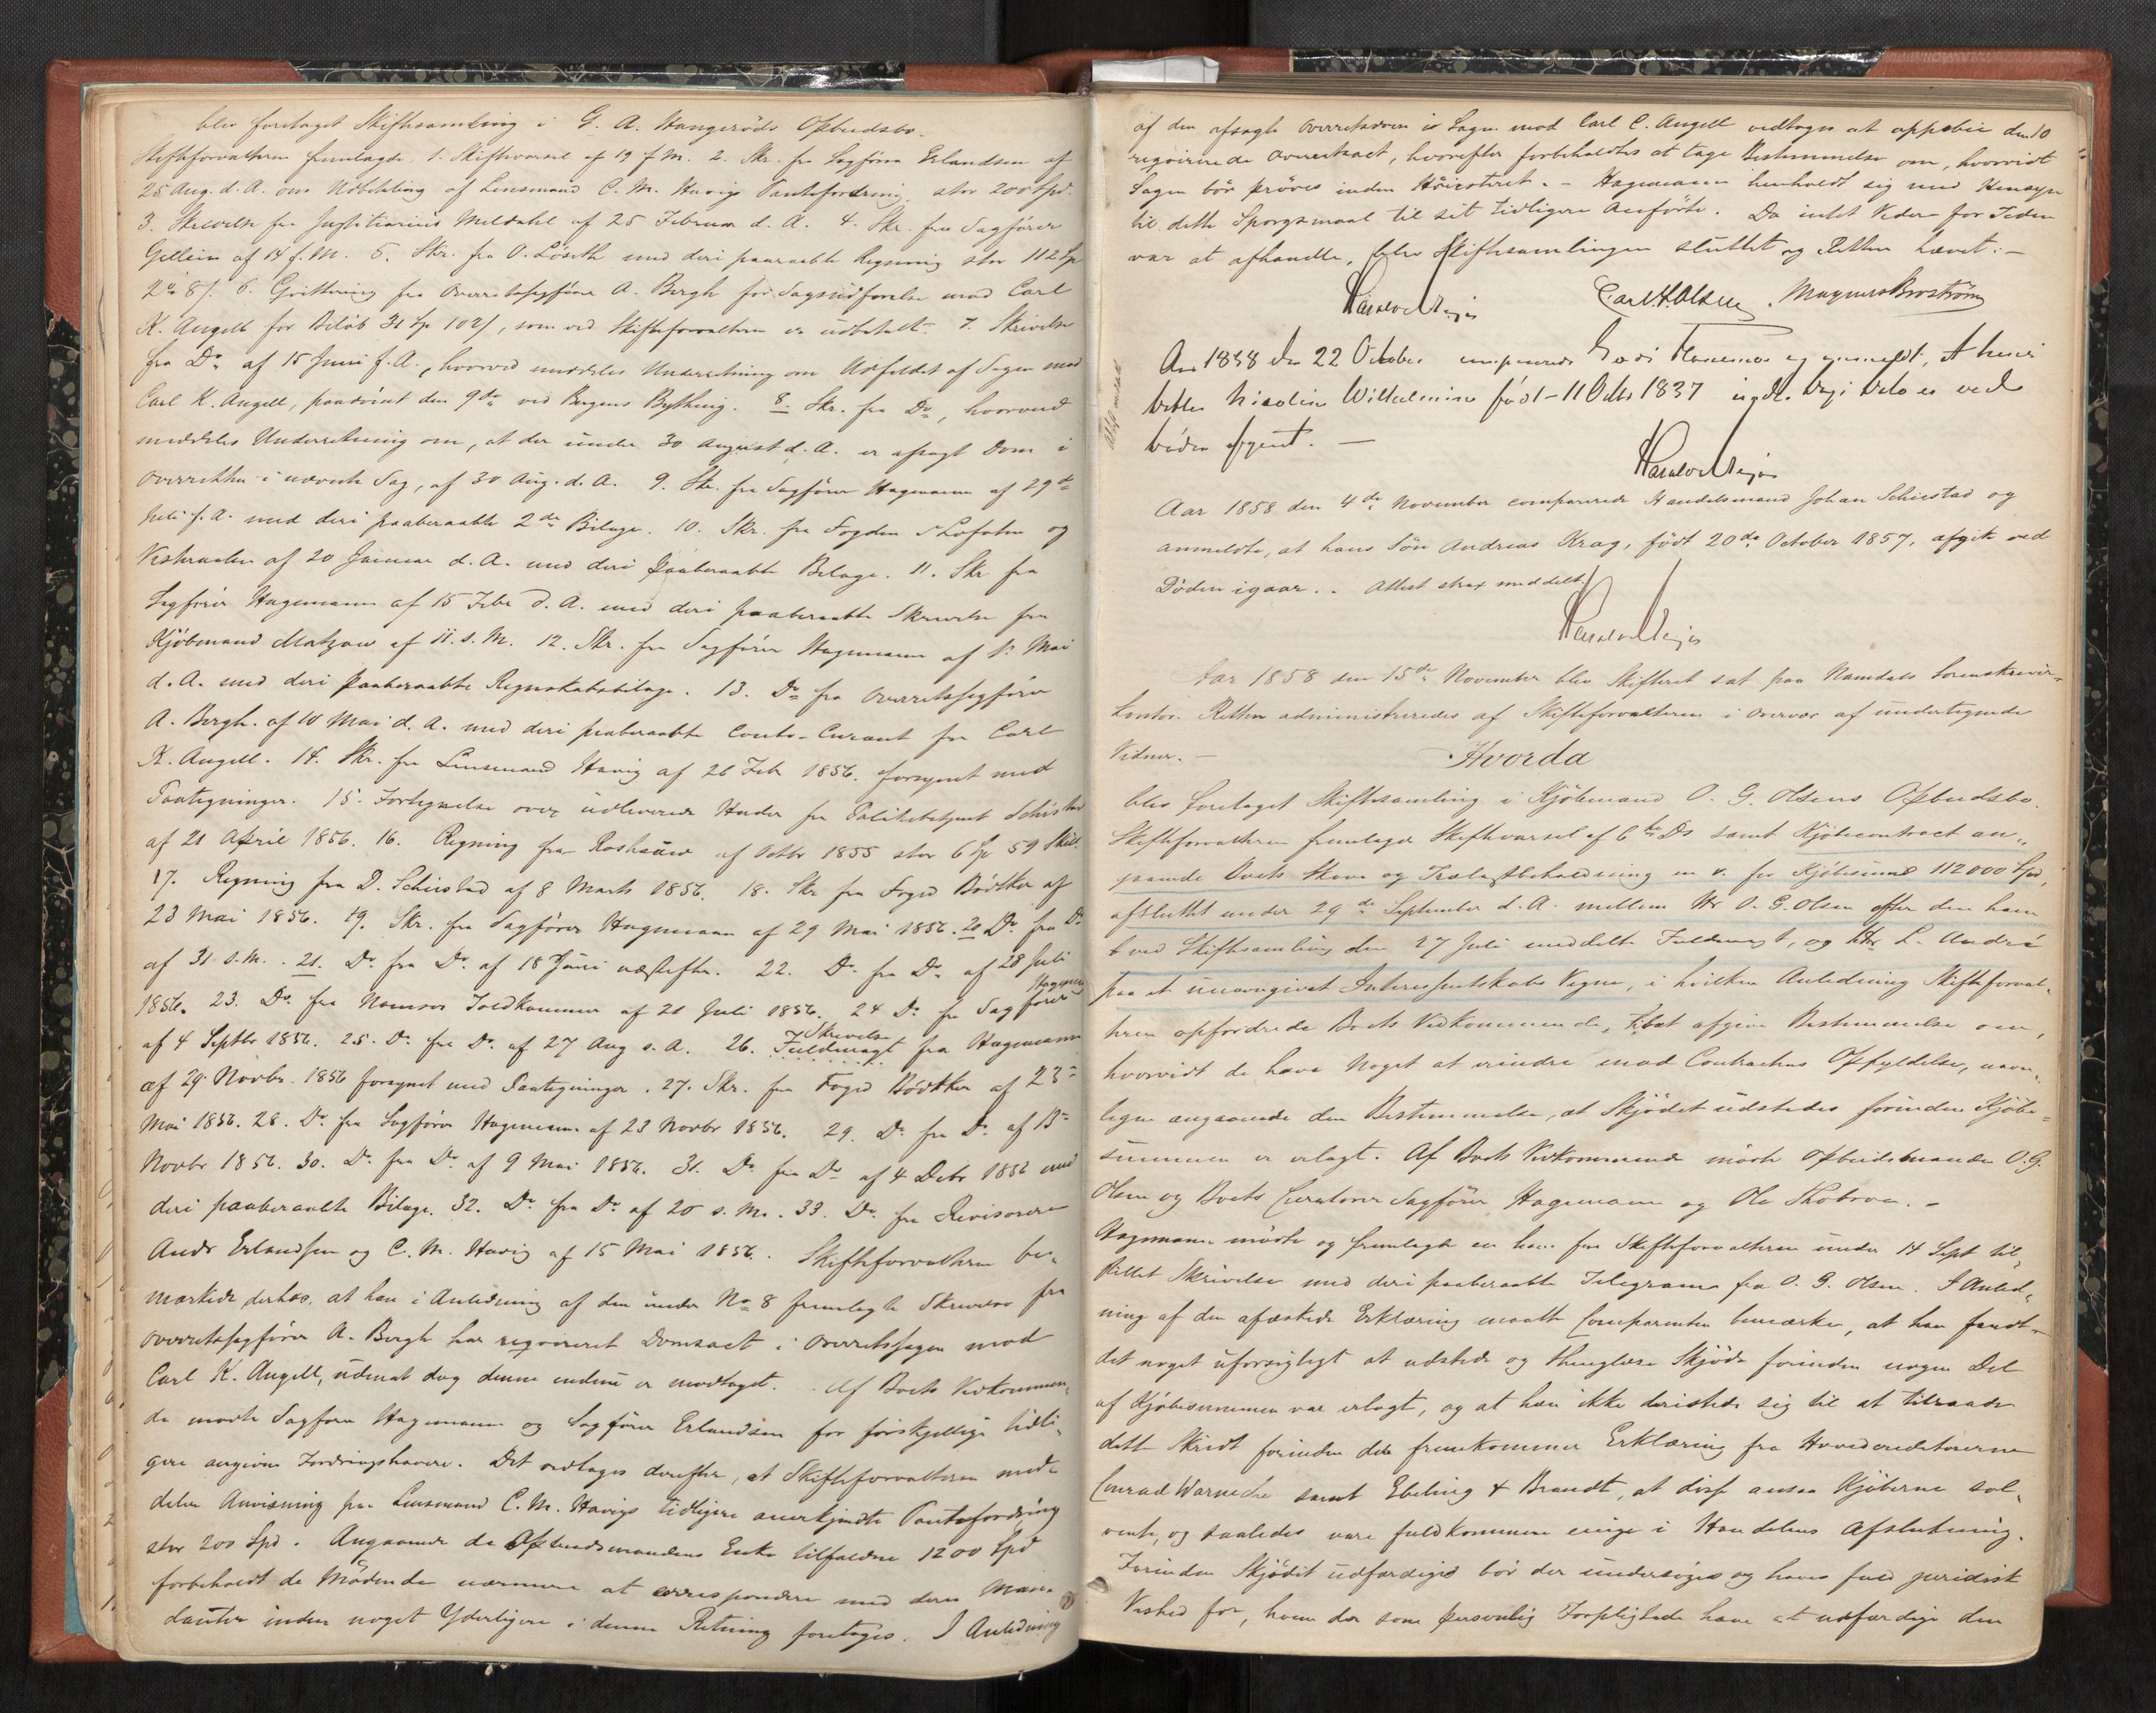 blev foretaget Skiftesamling i G. A. Hangerøds Opbudsbo.
Skifteforvalteren fremlagde 1. Skiftevarsel af 19 f. M. 2. Skr. fra Sagfører Erlandsen af
25 Aug. d. A. om Udbetaling af Lensmand C. M. Havigs Pantefordring, stor 200 Spd.
3. Skrivelse fra Justitiarius Meldahl af 25 Februar d. A. 4. Skr. fra Sagfører
af 14 f. M. 5. Skr. fra O. Løseth med deri paaraabte Regning stor 112 Sp
8/. 6. Qvittering fra Overretssagfører A. Bergh for Sagsudførelse mod Carl
K. Angell for Beløb 31 Sp 102/, som ved Skifteforvalteren er udbetalt. 7. Skrivelse
fra Do. af 15 Juni f. A., hvorved meddeles Underretning om Udfaldet af Sagen mod
Carl K. Angell, paadømt den 9de ved Bergens Bything. 8. Skr. fra Do., hvorved
meddeles Underretning om, at der under 30 August d. A. er afsagt Dom i
Overretten i nævnte Sag, af 30 Aug. d. A. 9. Skr. fra Sagfører Hagemann af 29de
Juli f. A. med deri paaberaabte 2de Bilage. 10. Skr. fra Fogden i Lofoten og
Vesteraalen af 20 Januar d. A. med deri paaberaabte Bilage. 11. Skr fra
Sagfører Hagemann af 15 Febr d. A. med deri paaberaabte Skrivelse fra
Kjøbmand Matzow af 11. s. M. 12. Skr. fra Sagfører Hagemann af 1. Mai
d. A. med deri paaberaabte Regnskabsbilage. 13. Do fra Overretssagfører
A. Bergh. af 10 Mai d. A. med deri paaberaabte Conto-Curant fra Carl
K. Angell. 14. Skr. fra Lensmand Havig af 26 Feb 1856. forsynet med
Paategninger. 15. Fortegnelse over udleverede Huder fra Politibetjent Schiestad
af 21 April 1856. 16. Regning fra af Octbr 1855 stor 6 Sp 59 Skill.
17. Regning fra D. Schiestad af 8 Marts 1856. 18. Skr fra Foged Bødtker af
23 Mai 1856. 19. Skr. fra Sagfører Hagemann af 29 Mai 1856. 20 Do. fra Do.
af 31 s. M. 21. Do. fra Do. af 18 Juni næstefter. 22. Do. fra Do. af 28 Juli
1856. 23. Do. fra Namsos Toldkammer af 21 Juli 1856. 24 Do. fra Sagfører Hagemann
af 4 Septbr 1856. 25. Do. fra Do. af 27 Aug s. A. 26. Fuldmagt Skrivelse fra Hagemann
af 29 Novbr. 1856 forsynet med Paategninger. 27. Skr. fra Foged Bødtker af 23
Mai 1856. 28. Do. fra Sagfører Hagemann af 23 Novbr 1856. 29. Do. fra Do. af 13
Novbr 1856. 30. Do. fra Do. af 9 Mai 1856. 31. Do. fra Do. af 4 Debr 1856 med
deri paaberaabte Bilage. 32. Do. fra Do. af 20 s. M. 33. Do. fra Revisorerne
Andr Erlandsen og C. M. Havig af 15 Mai 1856. Skifteforvalteren be-
mærkede derhos, at han i Anledning af den under No 8 fremlagte Skrivelse fra
Overretssagfører A. Bergh har reqvireret Domsact i Overretssagen mod
Carl K. Angell, uden at dog denne endnu er modtaget. Af Boets Vedkommen-
de mødte Sagfører Hagemann og Sagfører Erlandsen for forskjellige tidli-
gere angivne Fordringshavere. Det vedtoges derefter, at Skifteforvalteren med-
deler Anvisning paa Lensmand C. M. Havigs tidligere anerkjendte Pantefordring
stor 200 Spd. Angaaende de Opbudsmandens Enke tilfaldne 1200 Spd
forbeholdt de Mødende nærmere at correspondere med deres Man-
danter inden noget Yderligere i denne Retning foretages. I Anledning
af den afsagte Overretsdom i Sagen mod Carl C. Angell vedtoges at oppebie den
reqvirerede Overretsact, hvorefter forbeholdtes at tage Bestemmelse om, hvorvidt
Sagen bør prøves inden Høiesteret. - Hagemann henholdt sig med Hensyn
til dette Spørgsmaal til sit tidligere Anførte. Da intet Videre for Tiden
var at afhandle, blev Skiftesamlingen sluttet og Retten hævet. -
Carl H Olsen. Magnus Broström
Aar 1858 den 22 October comparerede og anmeldte, at hans
Datter Nicoline Wilhelmine født 11 Octbr 1837 er ved
Døden afgaaet. -
Attest meddelt
Aar 1858 den 4de November comparerede Handelsmand Johan Schiestad og
anmeldte, at hans Søn Andreas Krag, født 20de October 1857, afgik ved
Døden igaar. . Attest strax meddelt.
Aar 1858 den 15de November blev Skifteret sat paa Namdals Sorenskriver-
kontor. Retten administreredes af Skifteforvalteren i Overvær af undertegnede
Vidner. -
Hvorda
blev foretaget Skiftesamling i Kjøbmand O. G. Olsens Opbudsbo.
Skifteforvalteren fremlagde Skiftevarsel af 6te Ds samt Kjøbecontract an-
gaaende Boets Skove og Trælastbeholdning m. v. for Kjøbesum 112000 Spd,
afsluttet under 29de September d. A. mellem Hr O. G. Olsen efter den ham
ved Skiftesamling den 27 Juli meddelte Fuldmagt, og Hr L. André
paa et unavngivet Interessentskabs Vegne, i hvilken Anledning Skifteforval-
teren opfordrede Boets Vedkommende, til at afgive Bestemmelse om,
hvorvidt de have Noget at erindre mod Contractens Opfyldelse, navn-
ligen angaaende den Bestemmelse, at Skjødet udstedes forinden Kjøbe-
summen er erlagt. Af Boets Vedkommende mødte Opbudsmanden O. G.
Olsen og Boets Curatorer Sagfører Hagemann og Ole -
Hagemann mødte og fremlagde en ham fra Skifteforvalteren under 14 Sept til-
stillet Skrivelse med deri paaberaabte Telegram fra O. G. Olsen. I Anled-
ning af den afæskede Erklæring maatte Comparenten bemærke, at han fandt
det noget uforsigtigt at udstede og thinglæse Skjøde forinden nogen Del
af Kjøbesummen var erlagt, og at han ikke dristede sig til at tilraade
dette Skridt forinden der fremkommer Erklæring fra Hovedcreditorerne
Conrad Warnecke samt Ebeling & Brandt, at disse ansaa Kjøberne sol-
vente, og saaledes vare fuldkommen enige i Handelens Afslutning.
Forinden Skjødet udfærdiges bør der undersøges og haves fuld juridisk
Vished for, hvem der som personlig Forpligtede have at udfærdige den